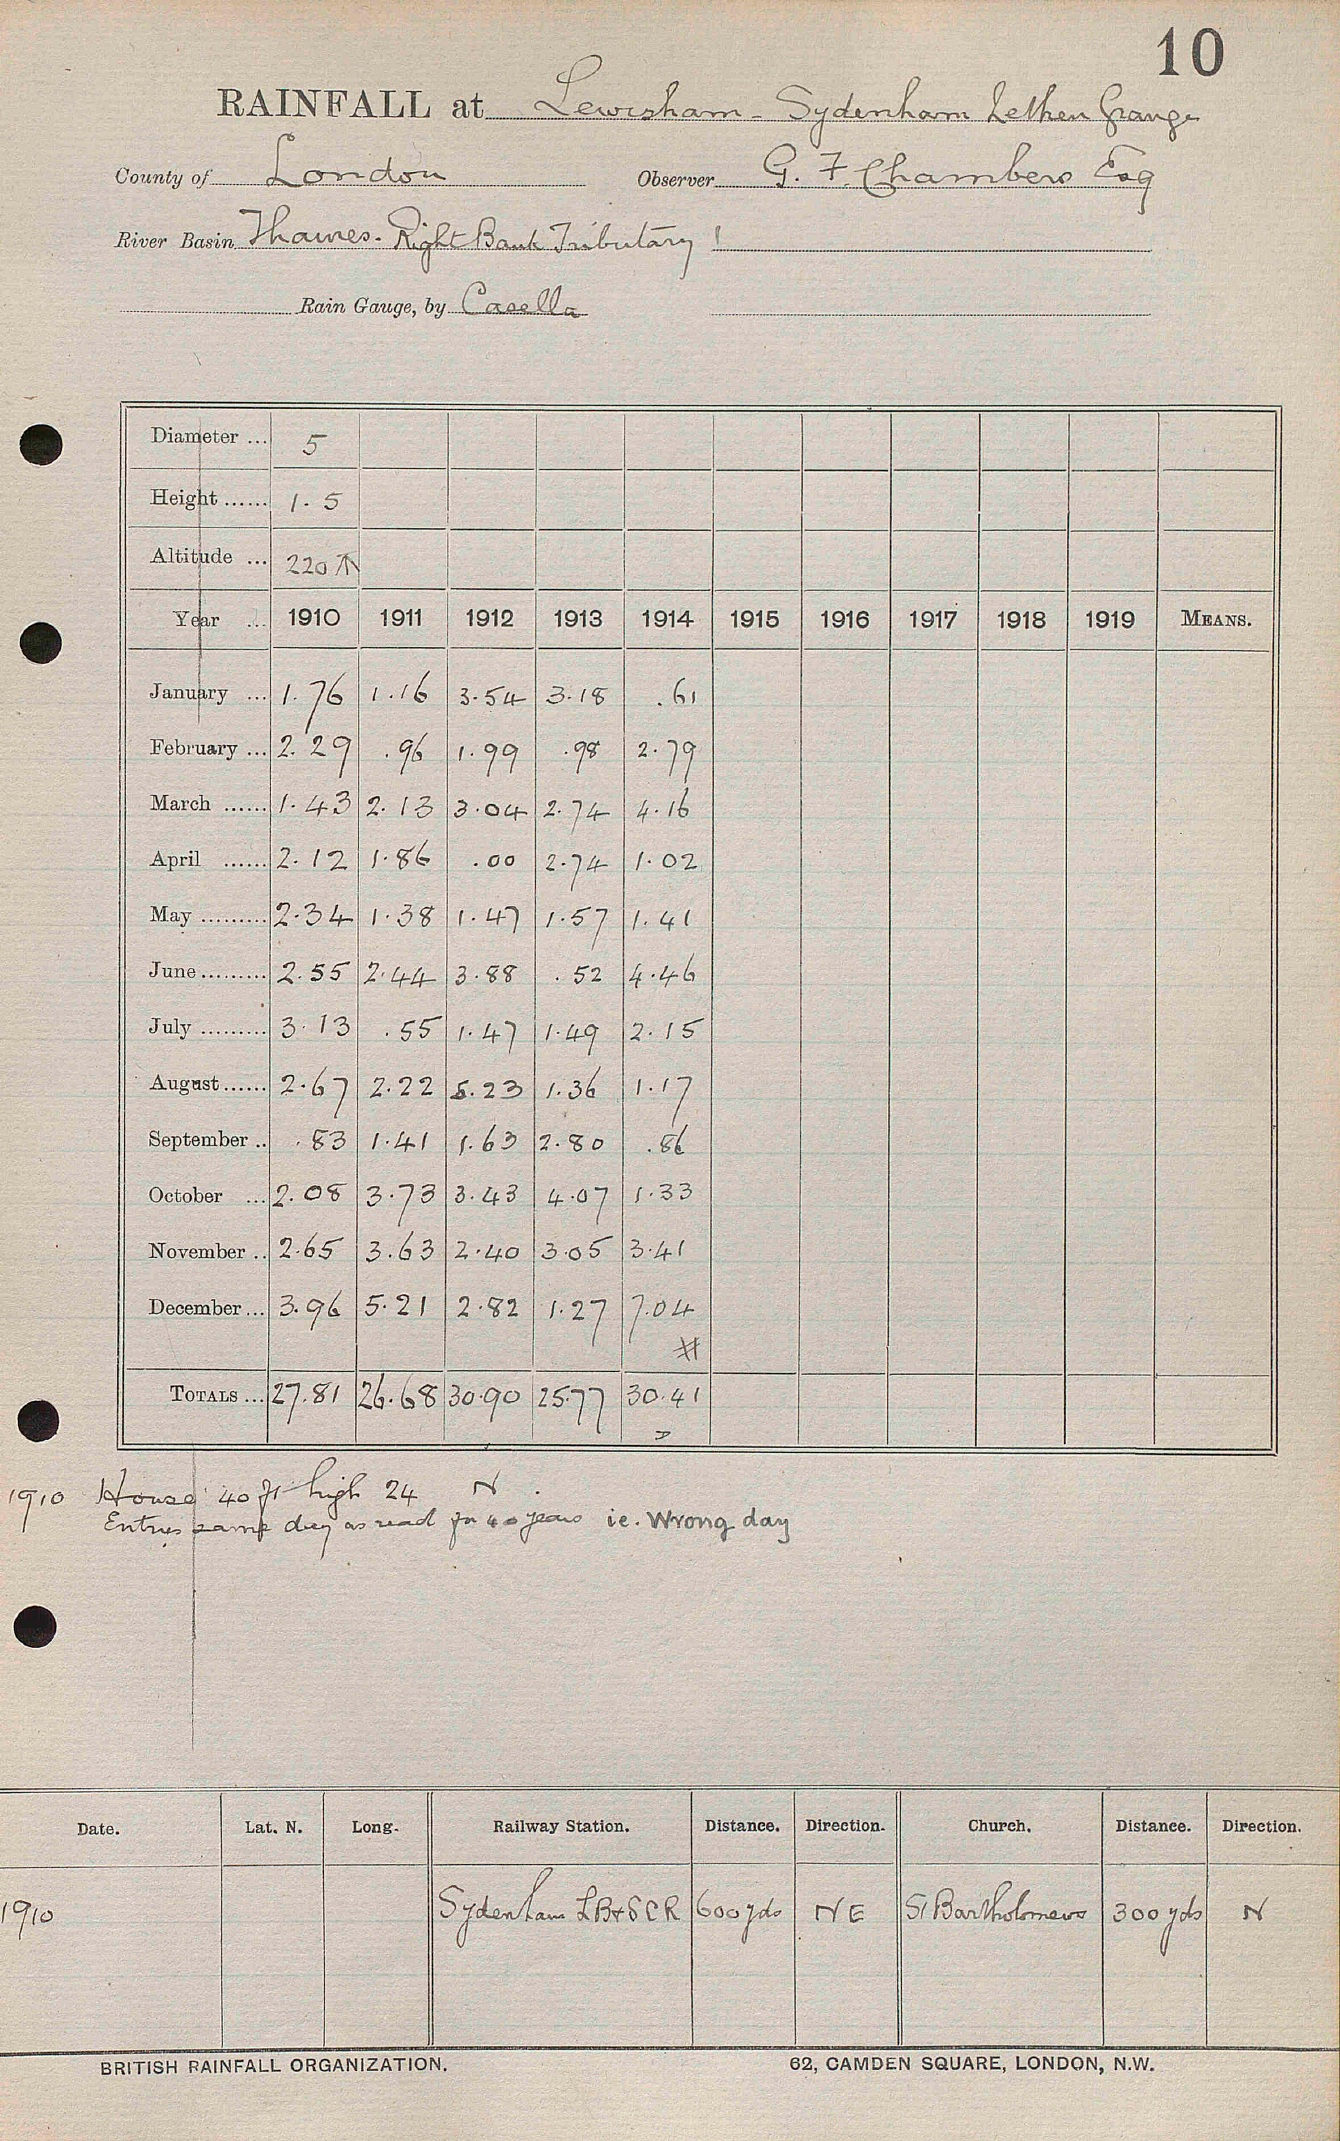 10
RAINFALL at Lewisham - Sydenham Lethen Grange
County of London Observer G. F. Chambers Esq
River Basin Thames. Right Bank Tributary
Rain Gauge, by Casella
Diameter ... 5
Height ...... 1.5
Altitude ... 220
Year ... 1910 1911 1912 1913 1914 1915 1916 1917 1918 1919 MEANS.
January ... 1.76 1.16 3.54 3.18 .61
February ... 2.29 .96 1.99 .98 2.79
March ...... 1.43 2.13 3.04 2.74 4.16
April ...... 2.12 1.86 .00 2.74 1.02
May ......... 2.34 1.38 1.47 1.57 1.41
June ......... 2.55 2.44 3.88 .52 4.46
July ......... 3.13 .55 1.47 1.49 2.15
August ...... 2.67 2.22 5.23 1.36 1.17
September .. .83 1.41 1.63 2.80 .86
October ... 2.08 3.73 3.43 4.07 1.33
November .. 2.65 3.63 2.40 3.05 3.41
December ... 3.96 5.21 2.82 1.27 7.04
#
TOTALS ... 27.81 26.68 30.90 25.77 30.41
1910 House 40 ft high 24 N.
Entries same day as read for 40 years ie. Wrong day
Date. Lat. N. Long. Railway Station. Distance. Direction. Church. Distance. Direction.
1910 Sydenham LB&SCR 600 yds NE St Bartholomews 300 yds N
BRITISH RAINFALL ORGANIZATION. 62, CAMDEN SQUARE, LONDON, N.W.